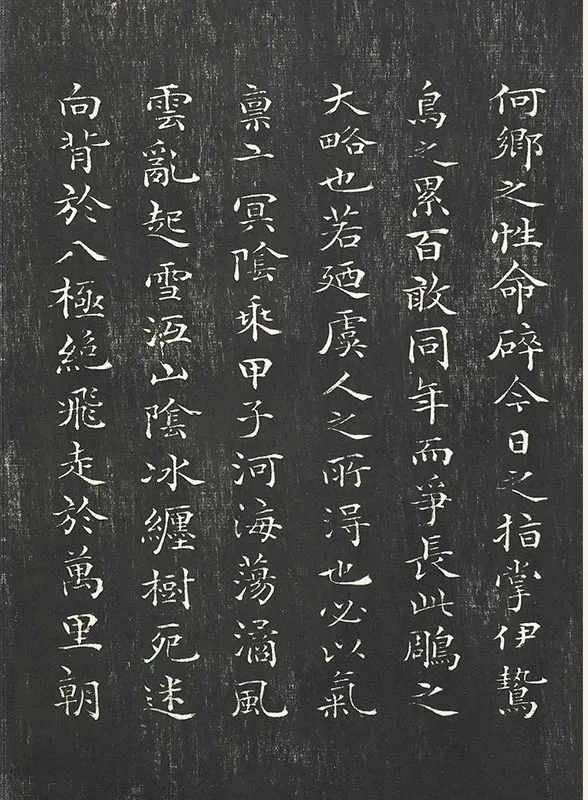 何鄉之性命碎今日之指掌伊鷙
鳥之累百敢同年而爭長此鵰之
大略也若廼虞人之所得也必以氣
禀二冥陰乘甲子河海蕩潏風
雲亂起雪沍山陰冰纏樹死迷
向背於八極絕飛走於萬里朝